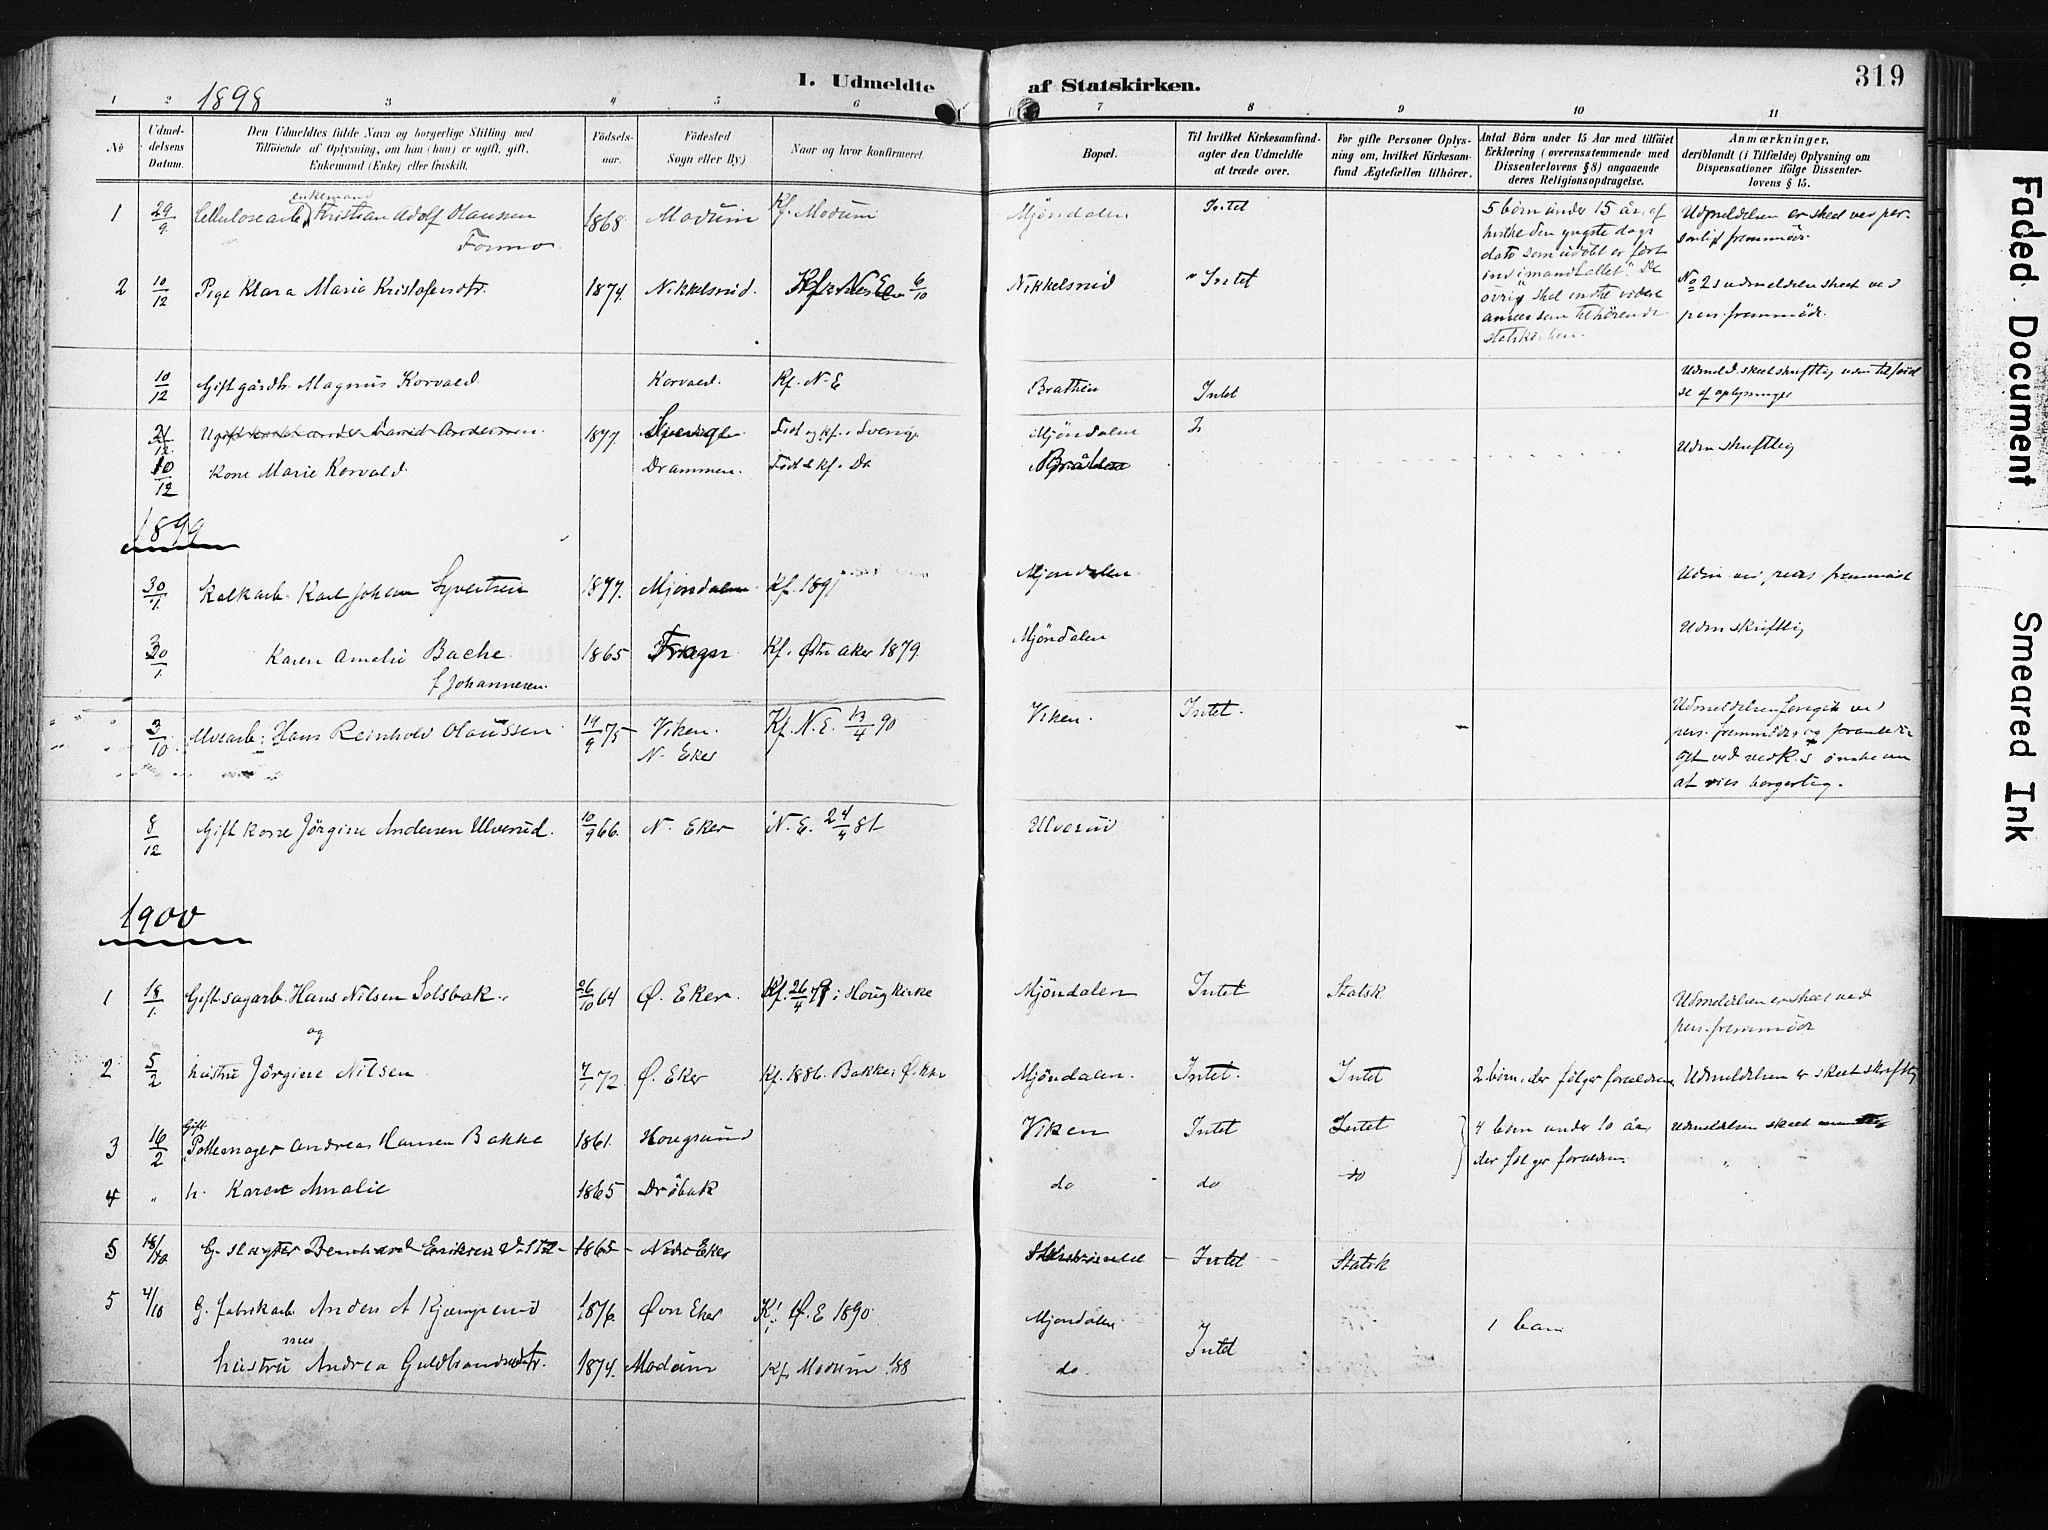 I. Udmeldte af Statskirken.
319
1898
1 2 3 4 5 6 7 8 9 10 11
No
Udmel-
delsens
Datum.
Den Udmeldtes fulde Navn og borgerlige Stilling med
Tilföiende af Oplysning, om han (hun) er ugift, gift,
Enkemand (Enke) eller fraskilt.
Födsels-
aar.
Födested
Sogn eller By)
Naar og hvor konfirmeret
Bopæl.
Til hvilket Kirkesamfund-
agter den Udmeldte
at træde over.
For gifte Personer Oplys-
ning om, hvilket Kirkesam-
fund Ægtefællen tilhörer.
Antal Börn under 15 Aar med tilföiet
Erklæring (overensstemmende med
Dissenterlovens § 8) angaaende
deres Religionsopdragelse.
Anmærkninger,
deriblandt (i Tilfælde) Oplysning om
Dispensationer ifölge Dissenter-
lovens § 15.
enkemand
1 29/9 Cellulosearb. Kristian Adolf Olaussen 1868 Modum Kf. Modum Mjöndalen Intet
Formo
5 börn under 15 år, af
hvilke den yngste dags
dato som udöbt er fört
ind i mandtallet. De
övrige skal indtil videre
ansees som tilhörende
statskirken.
Udmeldelsen er skeet ved per-
sonligt fremmöde.
2 10/12 Pige Klara Marie Kristofersdtr. 1874. Nikkelsrud. 6/10 Nikkelsrud Intet
No 2s udmeldelse skeet ved
pers. fremmöde.
10/12 Gift gårdbr. Magnus Korvald. Korvald. Kf. N. E Brathen Intet
Udmeld. skeet skriftlig uden tilföiel
se af oplysninger
21/12 Ugift David Andersen. 1877 Sverige Föd og kf. i Sverige Mjöndalen
Udm skriftlig
10/12 Kone Marie Korvald. Drammen. Född & kf. Do Bråthen
1899
30/1 Kalkarb. Karl Johan Syvertsen 1877. Mjöndalen Kf. 1891 Mjöndalen
fremmöde
30/1 Karen Amalie Bache 1865 Frogn Kf. Østre Aker 1879. Mjöndalen Udm skriftlig
f. Johannesen.
3/10 Hans Reinhold Olaussen 14/9 75 Viken. Kf. N. E. 13/4 90 Viken. Intet.
N. Eker
Udmeldelsen foregik ved
pers. fremmöde og foranledi-
get ved ved R.s önske om
at vies borgerlig.
8/12 Gift kone Jörgine Andersen Ulverud. 10/9 66. N. Eker N. E. 24/4 81 Ulverud
1900
1 18/1 Gift sagarb. Hans Nilsen Solsbak. 26/10 64 Ø. Eker. Kf. 26/4 79 i Houg Kirke Mjöndalen Intet Statsk
og
Udmeldelsen er skeet ved
pers. fremmöde
2 5/2 hustru Jörgine Nilsen 7/1 72. Ø. Eker Kf. 1886. Bakke, Ø. Eker Mjöndalen. Intet. Intet 2 börn, der fölger forældrene Udmeldelsen er skeet skriftlig
Gift
3 16/2 Pottemager Andreas Hansen Bakke 1861. Hougsund Viken Intet Intet 4 börn under 10 år,
der fölger forældrene. Udmeldelsen skeet
4 " h. Karen Amalie 1865 Dröbak do do do "
5 18/10 G. slagter Bernhard Eriksen 1865 Nedre Eker Intet Statsk
5 4/10 G. fabrikarb. Anders A Kjemperud 1876. Øvre Eker Kf. Ø. E 1890. Mjöndalen Intet 1 barn
med
hustru Andrea Guldbrandsdtr. 1874. Modum Kf. Modum 188 do.
Faded Document
Smeared Ink